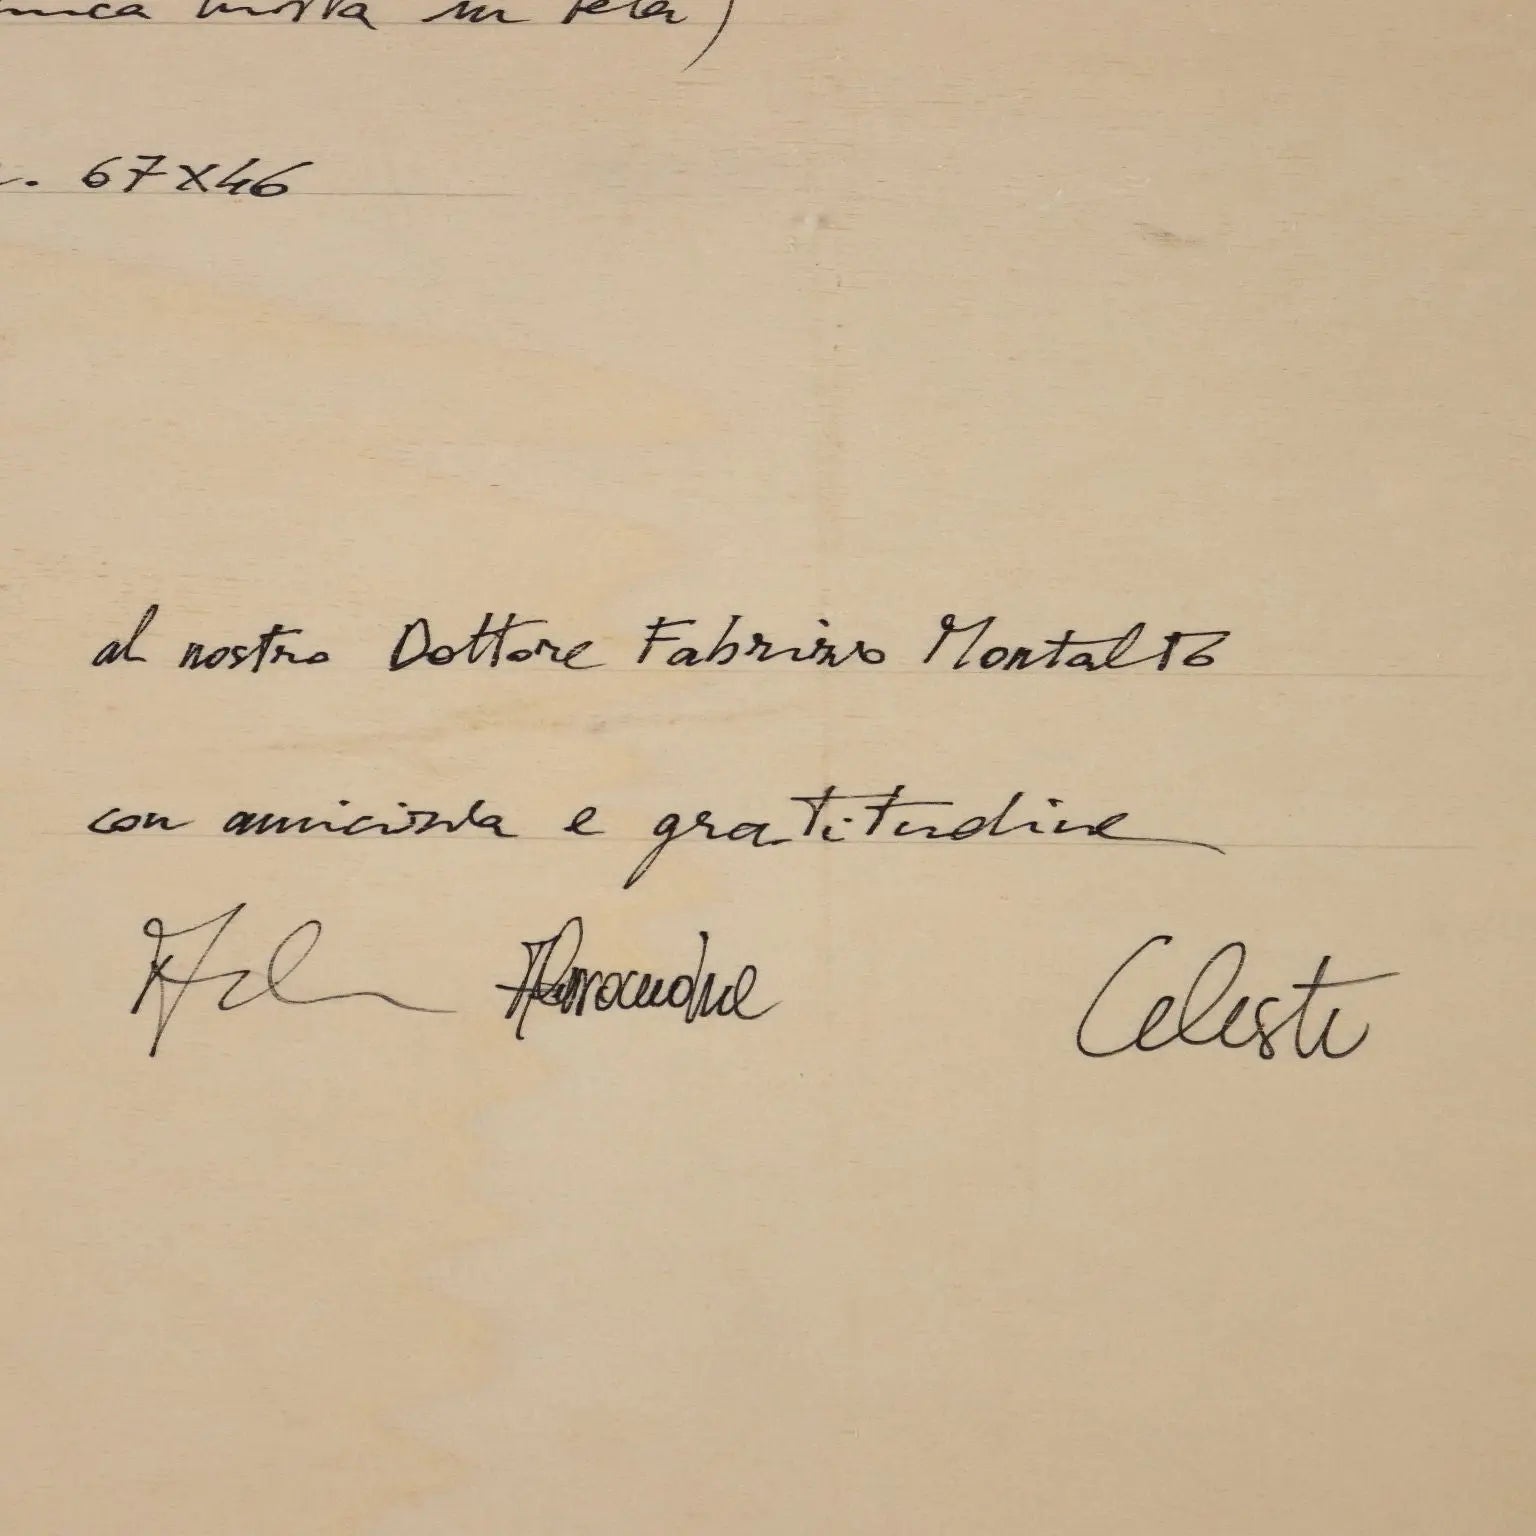 mista in tela)
. 67X46
al nostro Dottore Fabrizio Montalto
con amicizia e gratitudine
Celeste